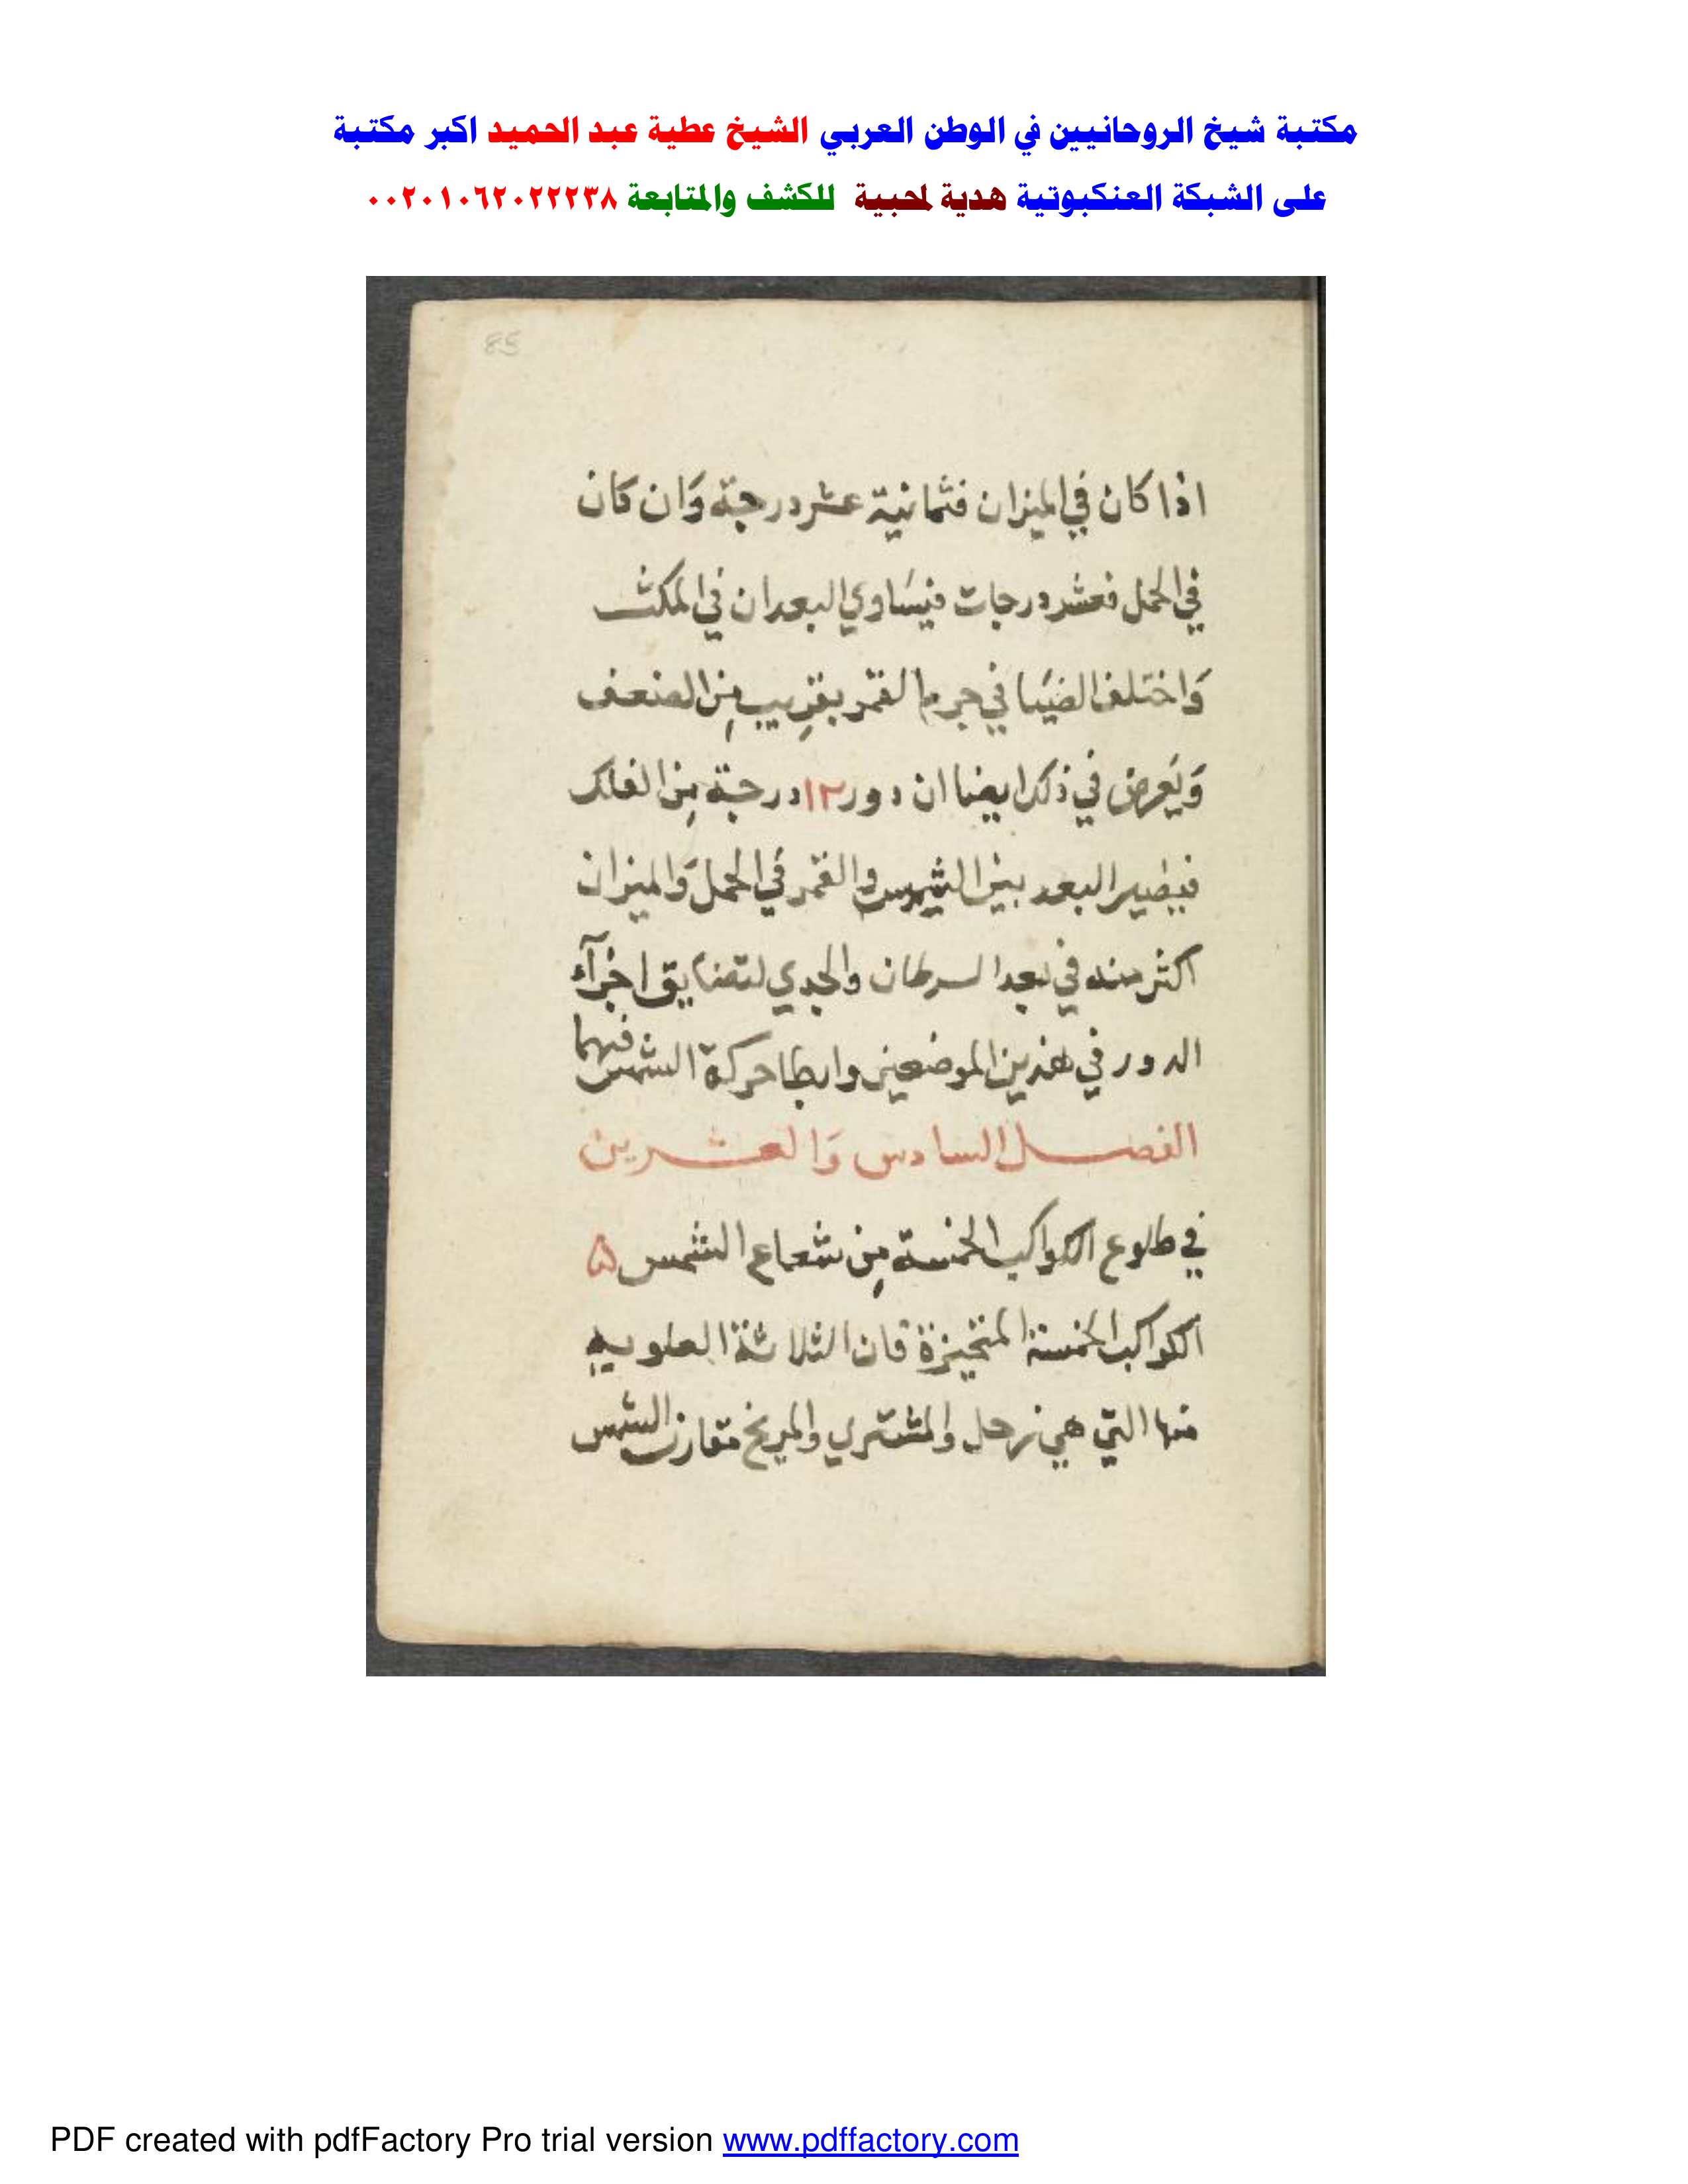 مكتبة شيخ الروحانيين في الوطن العربي الشيخ عطية عبد الحميد اكبر مكتبة
على الشبكة العنكبوتية هدية لمحبيه للكشف والمتابعة ٠٠٢٠١٠٦٢٠٢٢٢٣٨
85
اذا كان في الميزان فثمانية عشر درجة وَان كان
في الحمل فعشر درجات فيتساوي البعدان في المكث
وَاختلف الضيَا في جرم القمر بقريب مِن الضعف
وَيَعرض في ذلك ايضا ان دور ١٢ درجة مِن الفلك
فيصير البعد بين الشمس والقمر في الحمل وَالميزان
اكثر منه في بعد السرطان والجدي لتضايق اجزآء
الدور في هذين الموضعين وابطا حركة الشمس فيهما
الفصل السادس وَالعشرين
في طلوع الكواكب الخمسة مِن شعاع الشمس ۵
الكواكب الخمسة المتحيزة فان الثلاثة العلويه
منها التي هي زحل والمشتري والمريخ تقارن الشمس
PDF created with pdfFactory Pro trial version www.pdffactory.com